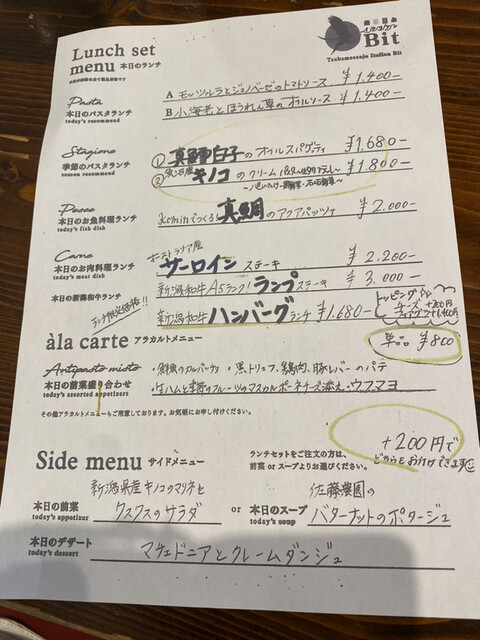 Lunch set
menu 本日のランチ
Bit
Tsubamesanjo Italian Bit
Pasta
本日のパスタランチ
today's recommend
A モッツァレラとジェノベーゼのトマトソース ¥1,400-
B 小海老とほうれん草のオイルソース ¥1,400-
Stagione
季節のパスタランチ
season recommend
① 真鱈白子のオイルスパゲッティ ¥1,680-
② キノコのクリーム ¥1,800-
Pesce
本日のお魚料理ランチ
today's fish dish
真鯛のアクアパッツァ ¥2,000-
Carne
本日のお肉料理ランチ
today's meat dish
オーストラリア産
サーロインステーキ ¥2,200-
新潟和牛A5ランク!ランプステーキ ¥3,000-
本日の新潟和牛ランチ
ランチ限定価格!!
新潟和牛ハンバーグランチ ¥1,680-
トッピング
チーズ +200円
àla carte アラカルトメニュー
単品 ¥800
Antipasto misto
本日の前菜盛り合わせ
today's assorted appetizers
・鮮魚のカルパッチョ ・黒トリュフ、鶏肉、豚レバーのパテ
・生ハムと季節のフルーツのマスカルポーネチーズ添え・ウフマヨ
その他アラカルトメニューもご用意しております。お気軽にお申し付けください。
+200円で
どちらもお付けできます
Side menu サイドメニュー
ランチセットをご注文の方は、
前菜 or スープよりお選びください。
本日の前菜
today's appetizer
新潟県産キノコのマリネと
クスクスのサラダ
or
本日のスープ
today's soup
佐藤農園の
バターナットのポタージュ
本日のデザート
today's dessert
マチェドニアとクレームダンジュ